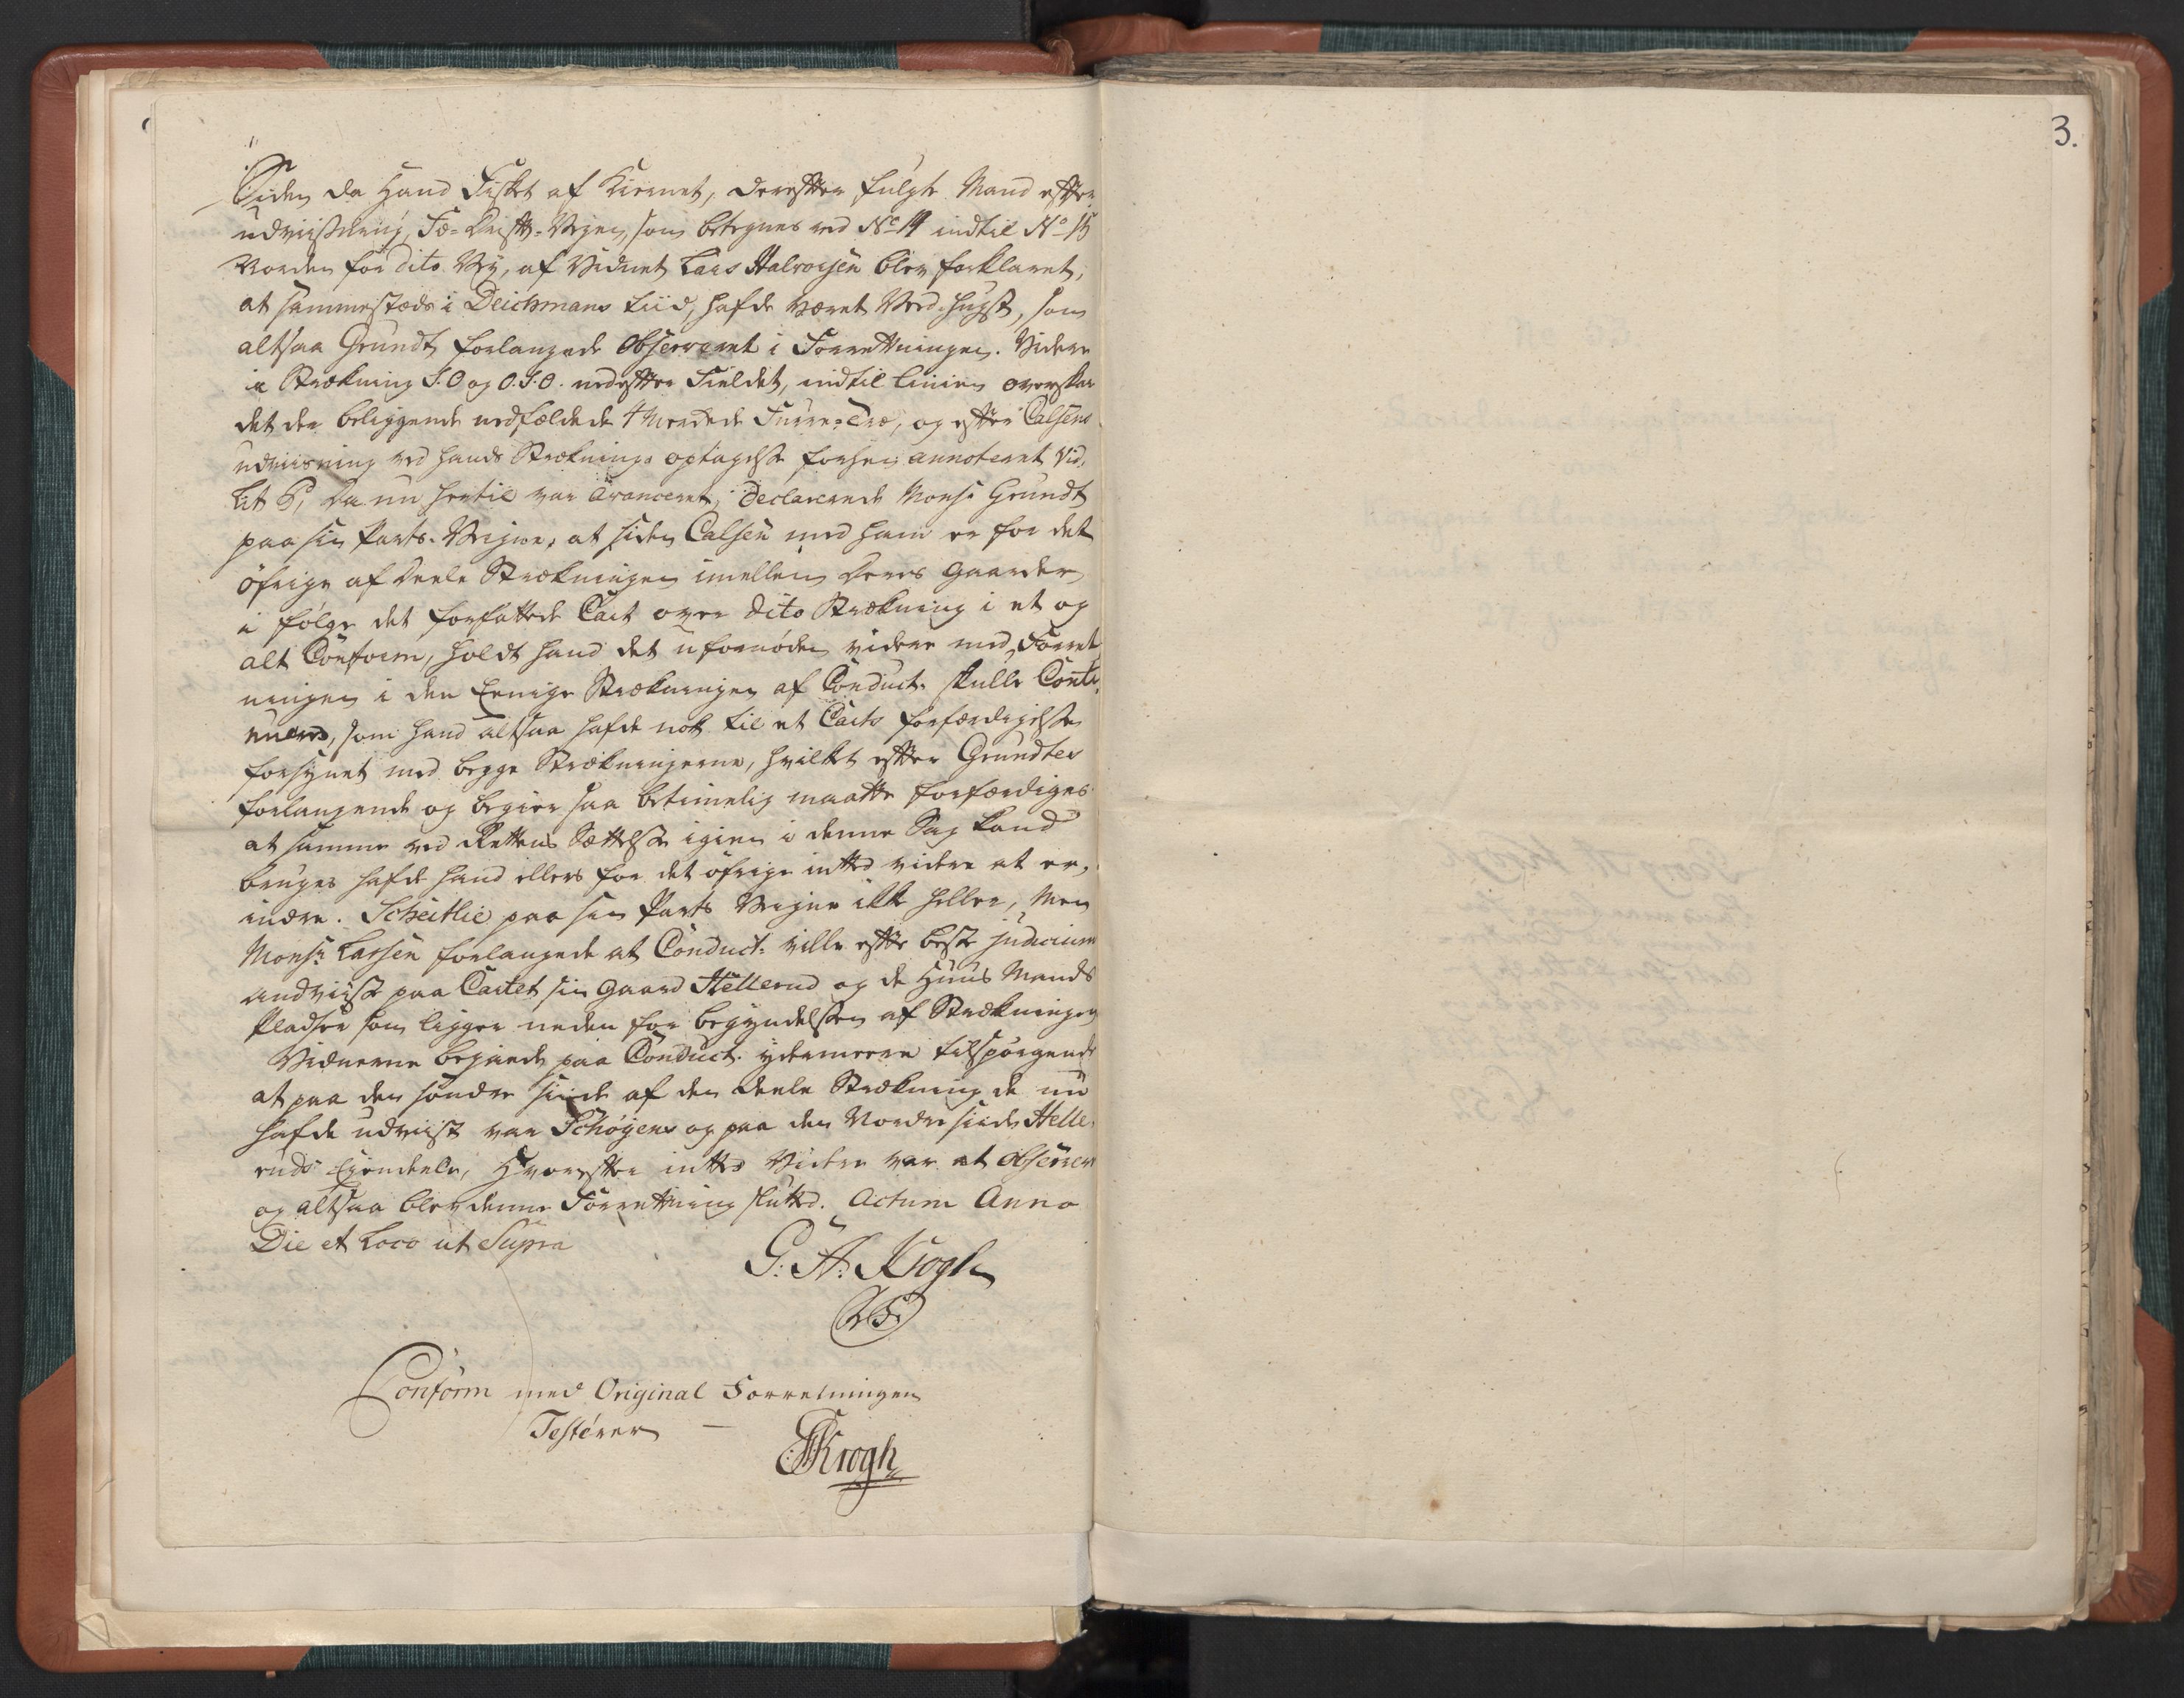 3.
Siden da Hand Fisket af Kiernet, derefter fulgte Mand efter
udviisning, Fæ-Drifts-Vejen, som betegnes ved No 14 indtil No 15
Norden for dito Vey, af Vidnet Lars Halvorsen blev forklaret,
at sammestæds i Deichmans tiid, hafde været Ved-hugst, som
altsaa Grundt forlangede Observeret i Forretningen. Videre
in Strækning S.O og O.S.O. nedefter Fieldet, indtil Linien overskar
det der beliggende nedfældede 4 Merkede Furre-Træ, og efter Calsens
udviisning ved hands Stræknings optagelse forhen annoteret Vid.
Lit B, da nu hertil var Avanceret, declarerede Monsr Grundt
paa sin Parts-Vegne, at siden Calsen med ham er for det
öfrige af Deele Strækningen imellem deres gaarder
i følge det forfattede Cart over dito Strækning i et og
alt Conform, holdt hand det ufornøden videre med Forret
ningen i den Eenige Strækningen af Conduct. skulle Conti,
nueres, som hand altsaa hafde nok til et Carts forfærdigelse
forsynet med begge Strækningerne, hvilket efter Grundtes
forlangende og begier saa betimelig maatte forfærdiges
at samme ved Rettens Sættelse igien i denne Sag kand
bruges hafde hand ellers for det øfrige intted videre at er,
indre. Scheitlie paa sin Parts Vegne ikke heller, Men
Monsr Larsen forlangede at Conduct: ville efter beste judicium
andviise paa Cartet sin gaard Hellerud og de Huus Mands
Pladser som ligger neden for begyndelsen af Strækningen
Vidnerne bejaede paa Conduct. ydermeere tilspørgende
at paa den søndre siide af den deele Strækning de nu
hafde udviist var Schøyens og paa den Nordre siide Helle,
ruds Eyendeele, Hvorefter intted Videre var at observer
og altsaa blev denne Forretning slutted. Actum Anno
Die et Loco ut Supra
G: A: Krogh
Conform med Original Forretningen
Testerer —
GAKrogh